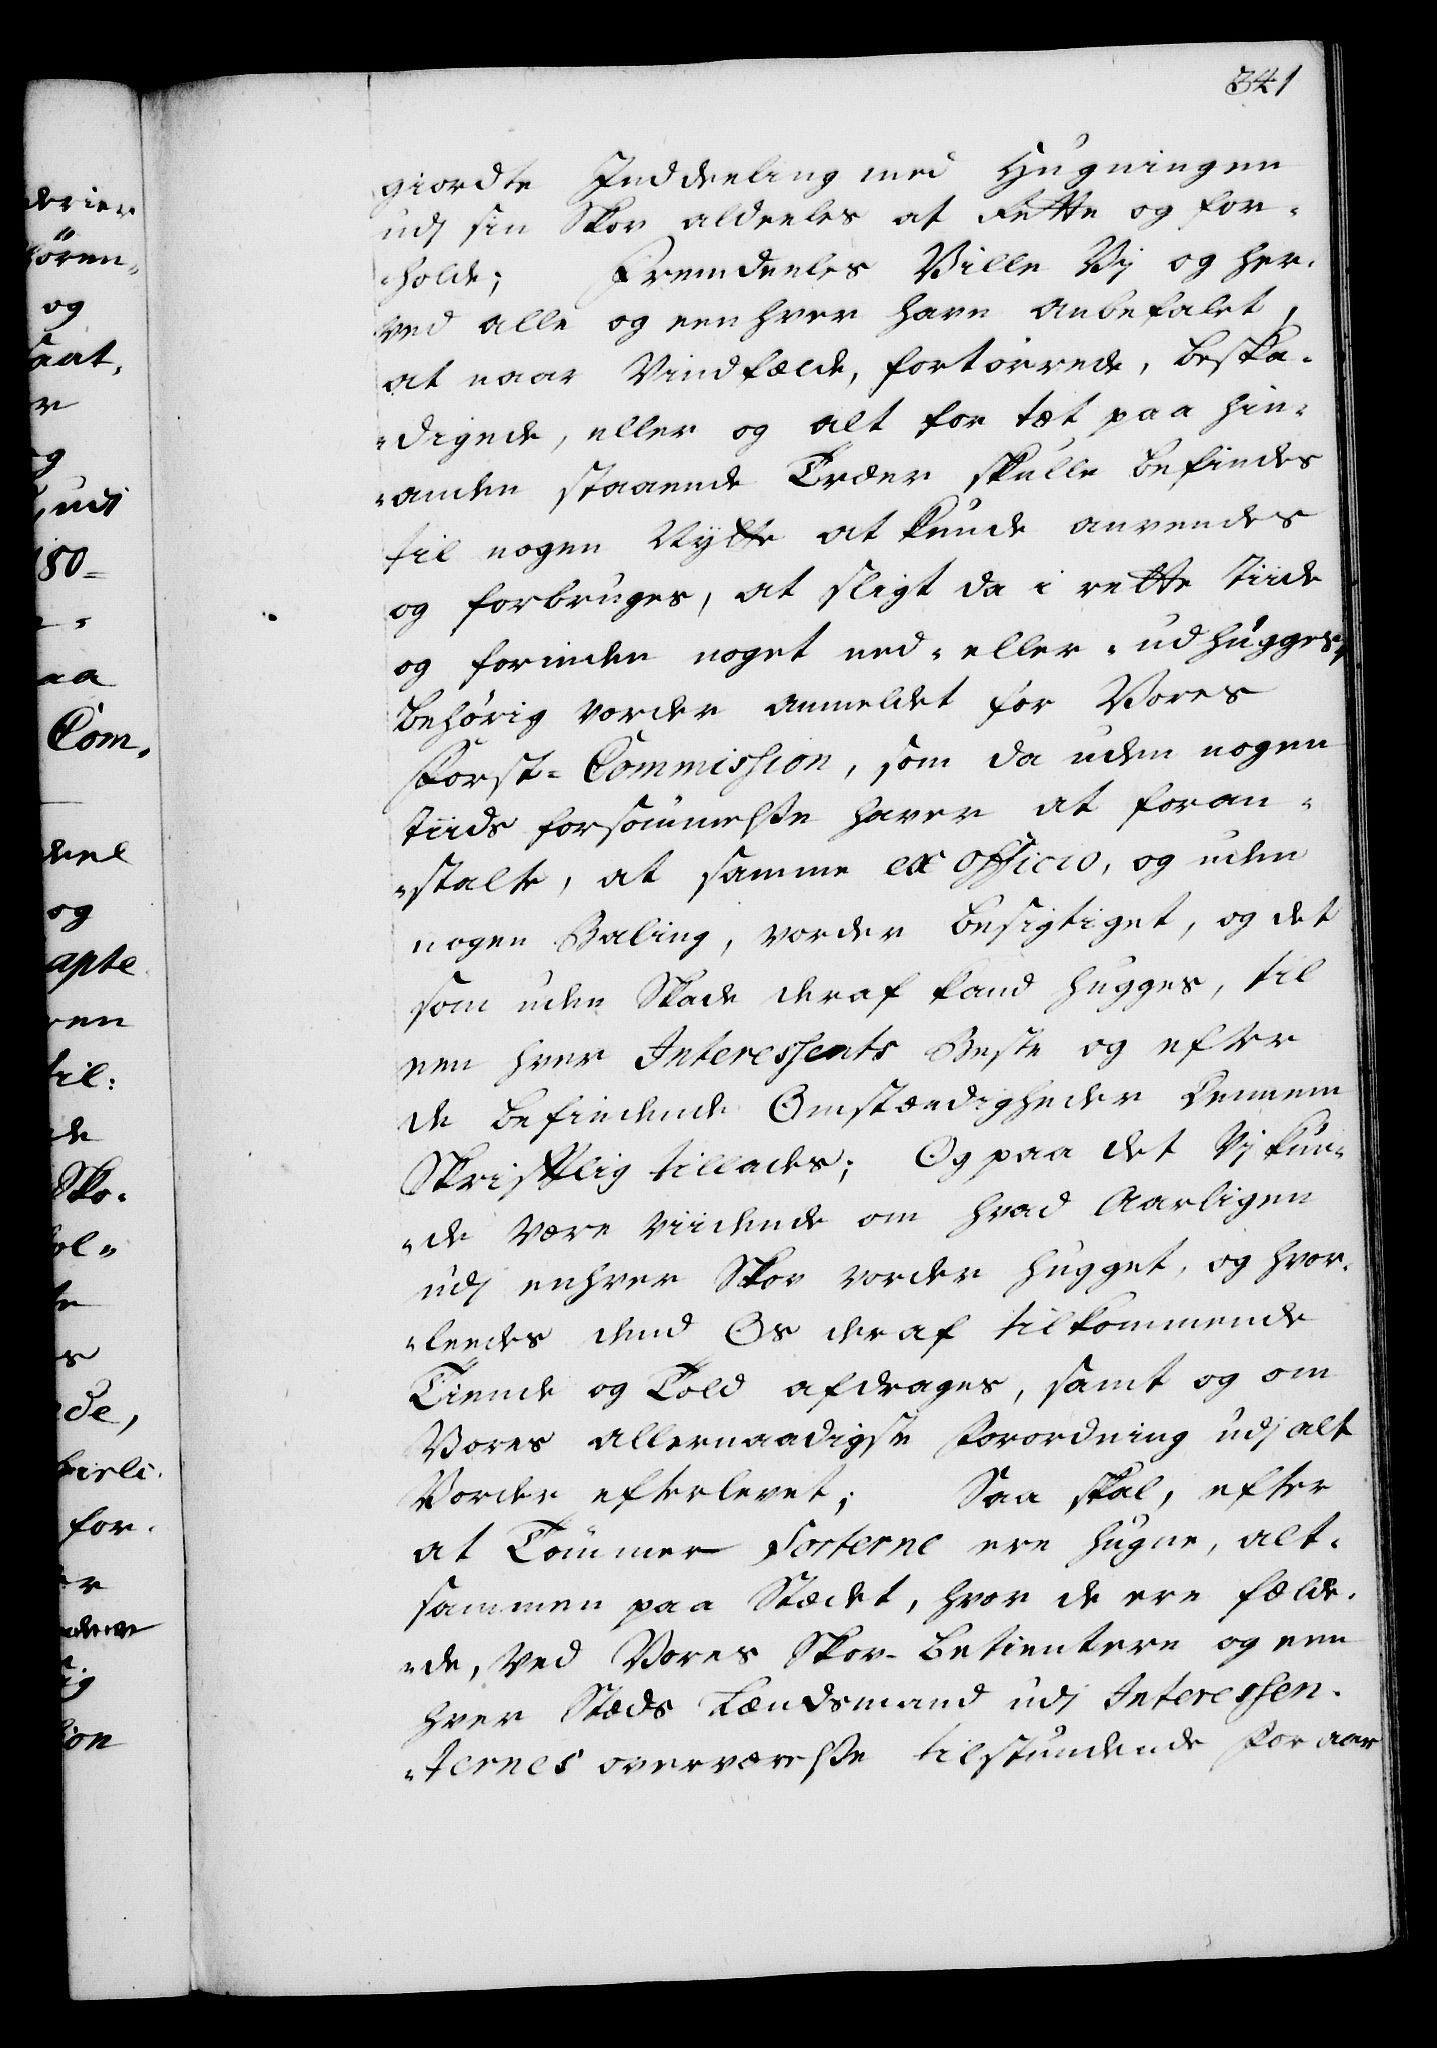 341
giordte Inddeeling med Hugningen
udj sin Skov aldeeles at rette og for-
-holde; Fremdeeles Ville Vij og her-
ved alle og een hver have anbefalet,
at naar Vindfælde, fortörrede, beska-
-digede, eller og alt for tæt paa hin-
-anden staaende Træer skulle befindes
til nogen Nytte at kunde anvendes
og forbruges, at sligt da i rette Tiide
og forinden noget ned- eller -udhugges,
behörig vorder anmeldet for Vores
Forst-Commission, som da uden nogen
Tiids forsömmelße haver at foran-
-stalte, at samme ex officio, og uden
nogen Betaling, vorder besigtiget, og det
som uden Skade deraf kand hugges, til
een hver Interessents Beste og efter
de befindende Omstændigheder dennem
Skrifftlig tillades; Og paa det Vj kun-
-de være viidende om hvad Aarligen
udj enhver Skov vorder hugget, og hvor-
-leedes dend Os deraf tilkommende
Tiende og Told afdrages, samt og om
Vores allernaadigste Forordning udj alt
Vorder efterlevet; Saa skal, efter
at Tömmer Sorterne ere hugne, alt-
sammen paa Stædet, hvor de ere fælde-
-de, ved Vores Skov-betientere og een
hver Stæds Lændsmand udj Interessen-
-ternes overværelße tilstundende Foraar
derier
hören-
og
saat,
udi
180-
aa
Com-
deel
og
apte
ren
til:
de
Sko-
hol-
de,
for-
er
sig
ion